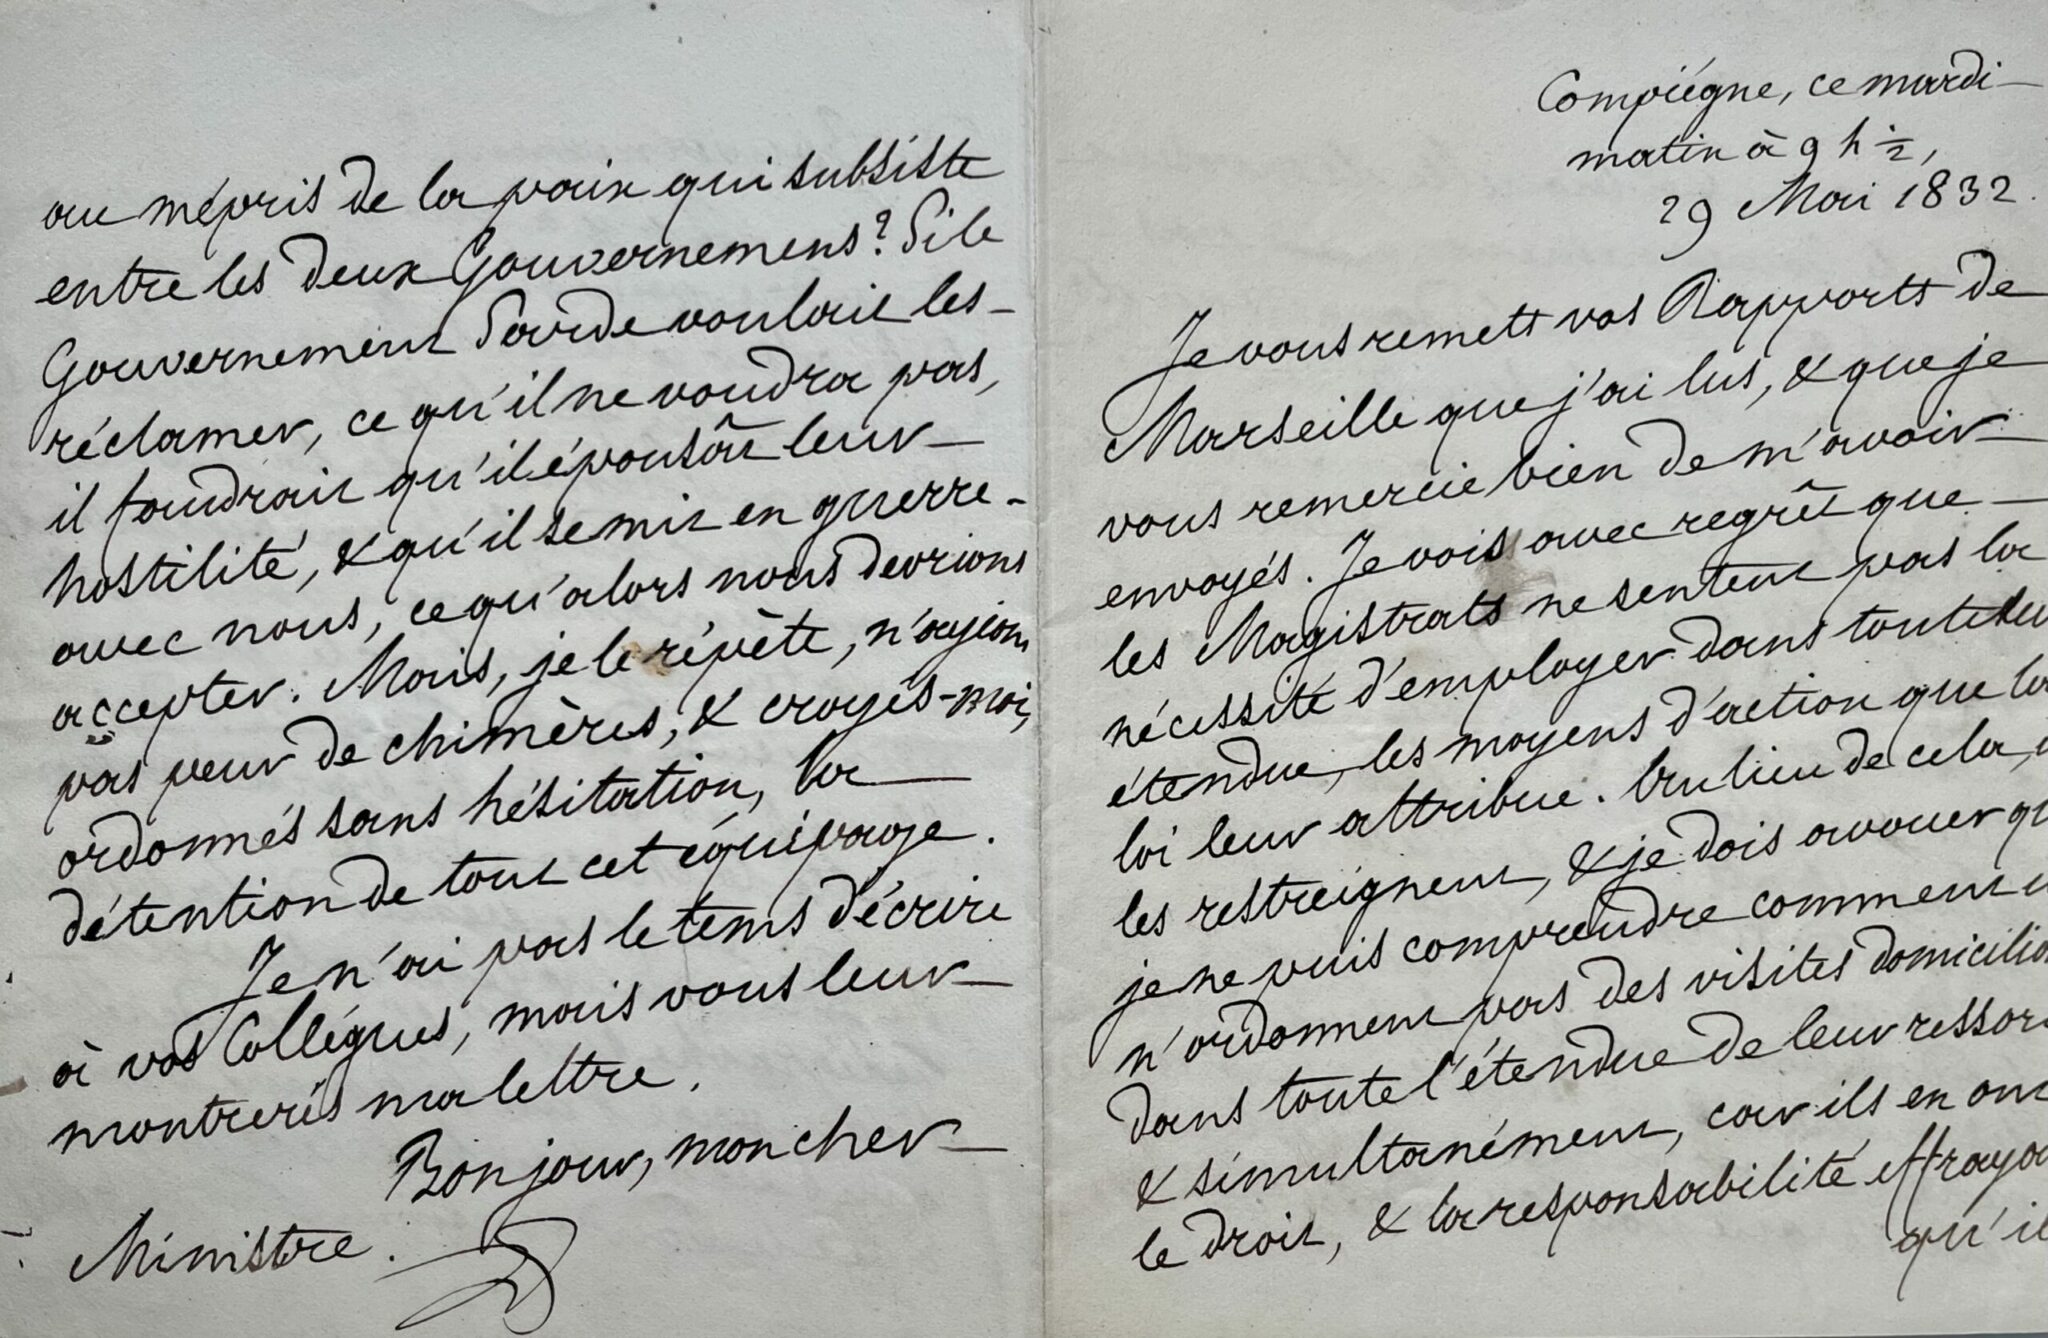 au mépris de la paix qui subsiste
entre les deux Gouvernemens? Si le
Gouvernement Sarde voulait les
réclamer, ce qu'il ne voudra pas,
il faudrait qu'il épousât leur
hostilité, & qu'il se mit en guerre
avec nous, ce qu'alors nous devrions
accepter. Mais, je le répète, n'ayions
pas peur de chimères, & croyés-moi,
ordonnés sans hésitation, la
détention de tout cet équipage.
Je n'ai pas le tems d'écrire
à vos Collégues, mais vous leur
montrerés ma lettre.
Bonjour, mon cher
Ministre.
Compiégne, ce mardi
matin à 9 h ½,
29 Mai 1832.
Je vous remets vos Rapports de
Marseille que j'ai lus, & que je
vous remercie bien de m'avoir
envoyés. Je vois avec regrêt que
les Magistrats ne sentent pas la
nécessité d'employer dans toute leu
étendue, les moyens d'action que la
loi leur attribue. Au lieu de cela,
les restreignent, & je dois avouer qu
je ne puis comprendre comment
n'ordonnent pas des visites domicilia
dans toute l'étendue de leur ressort
& simultanément, car ils en ont
le droit, & la responsabilité effraya
qu'il